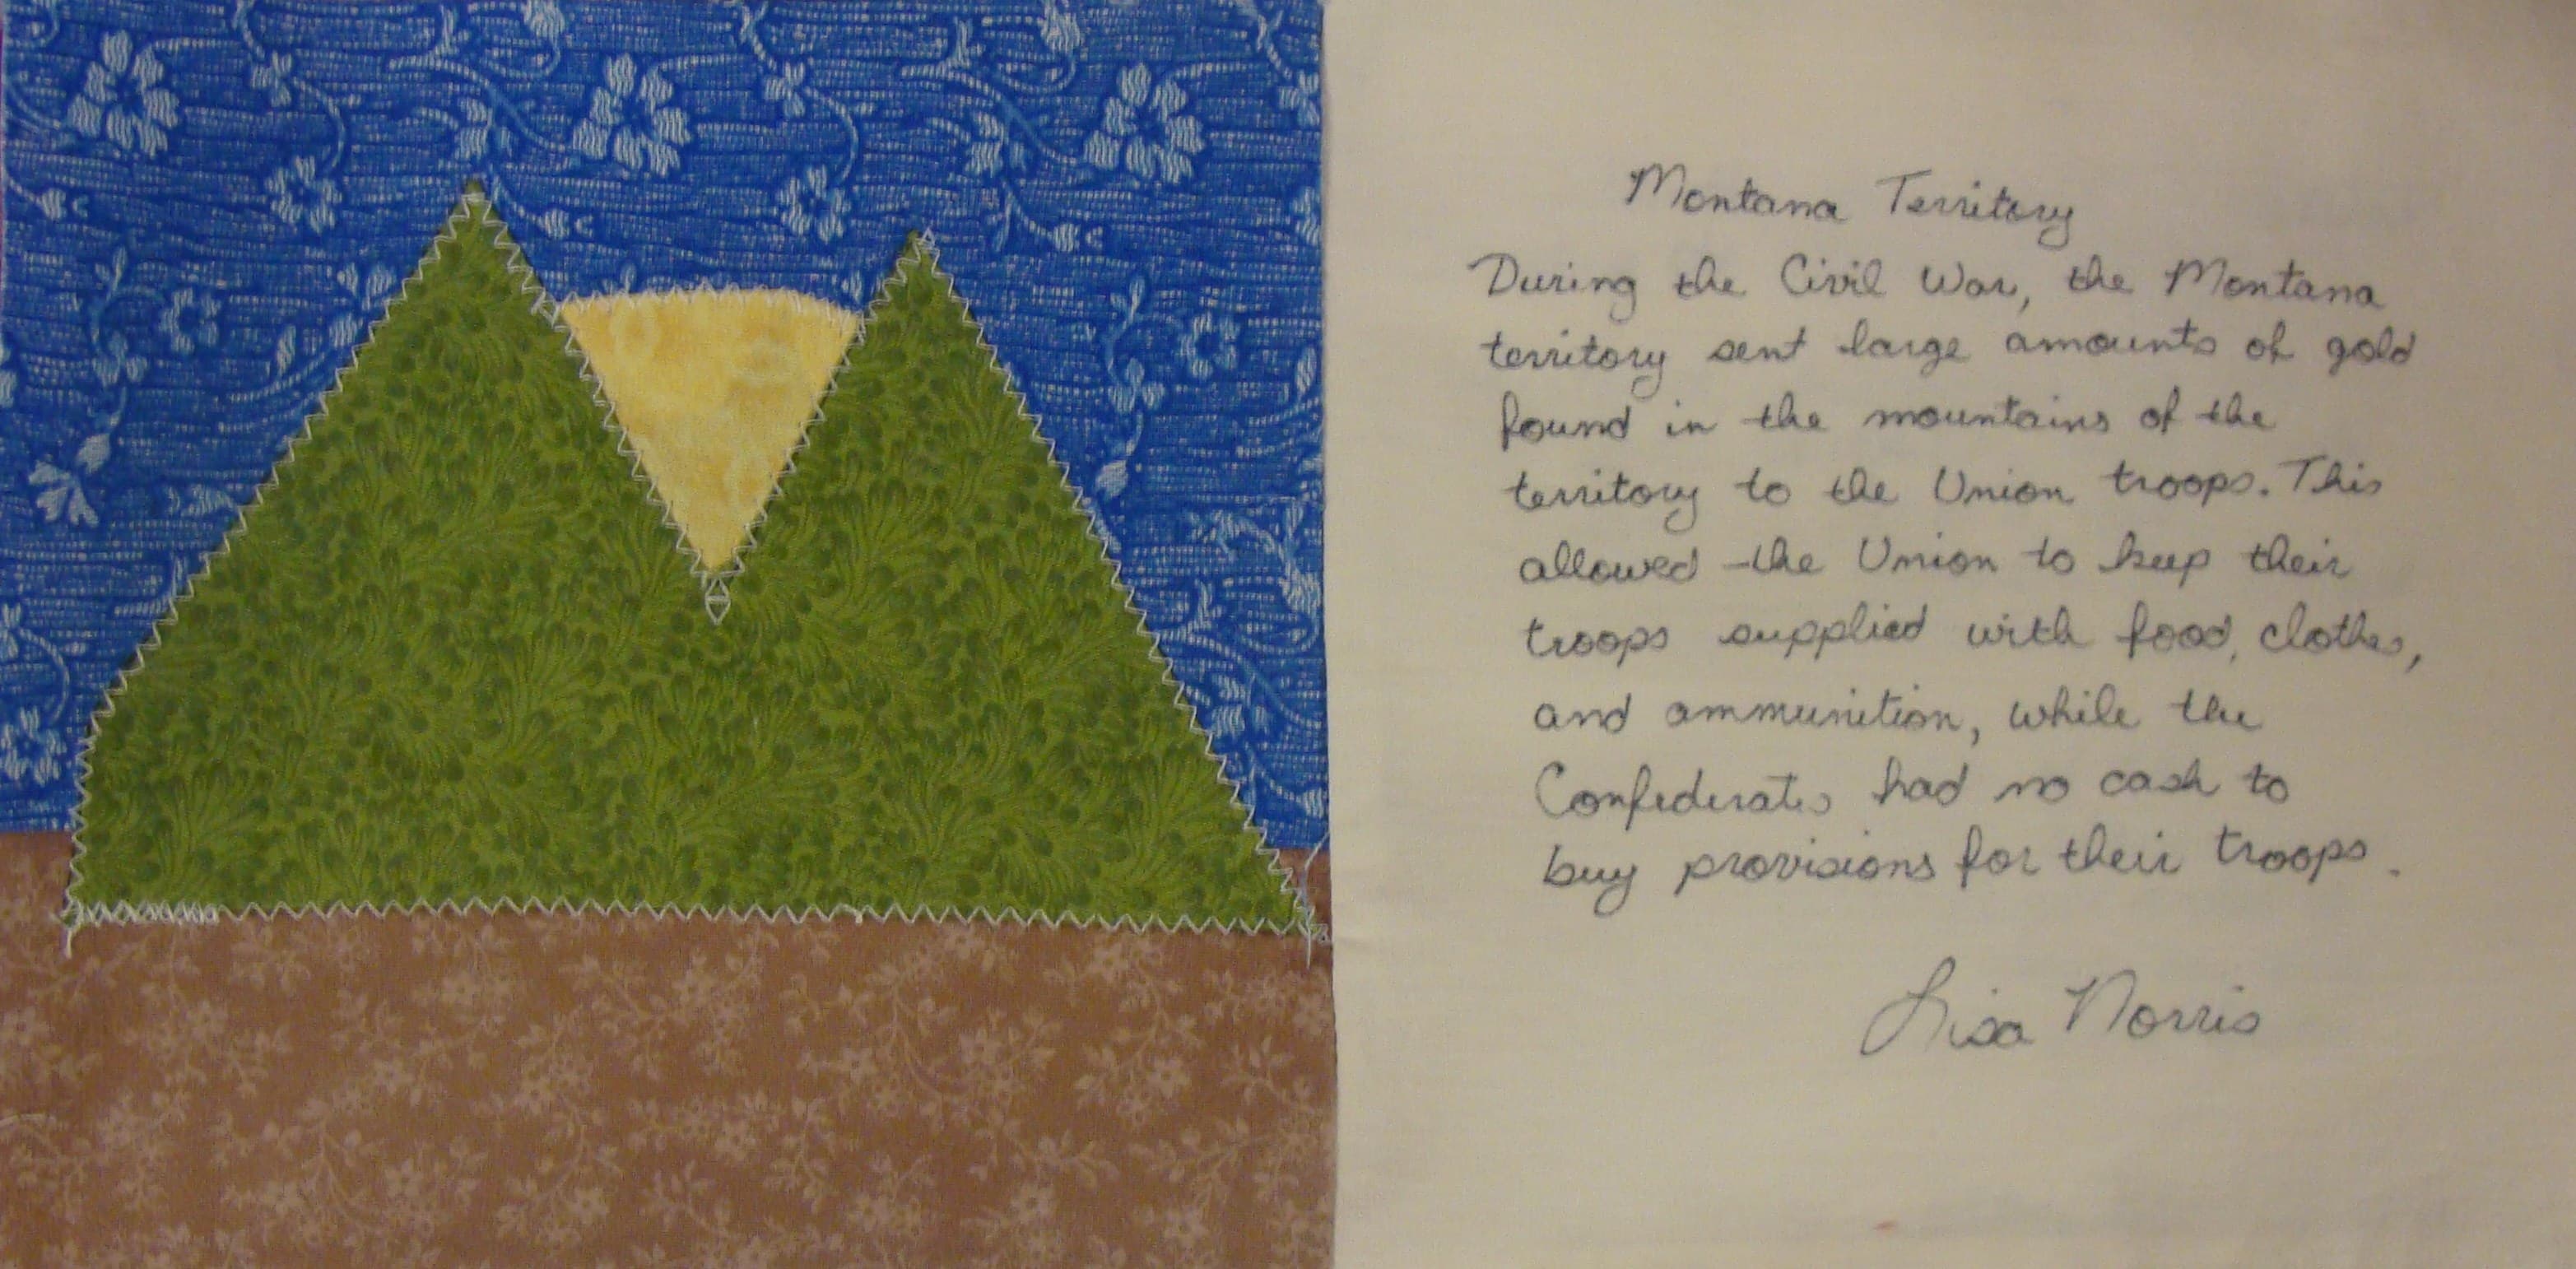 Montana Territory
During the Civil War, the Montana
territory sent large amounts of gold
found in the mountains of the
territory to the Union troops. This
allowed the Union to keep their
troops supplied with food, clothes,
and ammunition, while the
Confederates had no cash to
buy provisions for their troops.
Lisa Norris